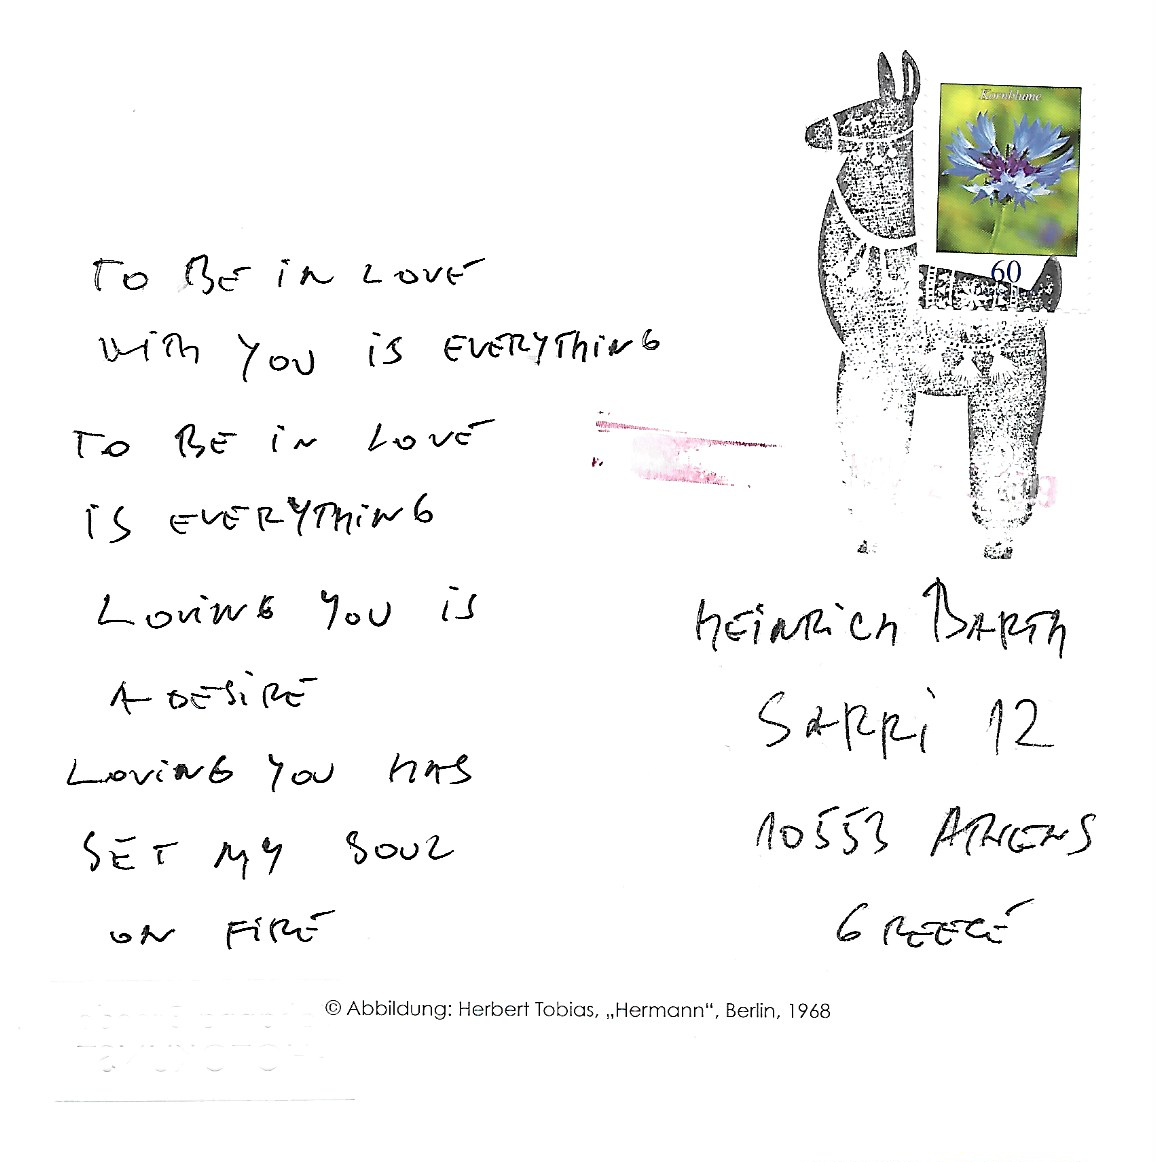 TO BE iN LOVE
WiTH YOU iS EVERYTHiNG
TO BE iN LOVE
iS EVERYTHiNG
LOViNG YOU iS
A DESiRE
LOViNG YOU HAS
SET MY SOUL
ON FiRE
Kornblume
60
HEiNRiCH BARTH
SARRi 12
10553 ATHENS
GREECE
© Abbildung: Herbert Tobias, „Hermann“, Berlin, 1968